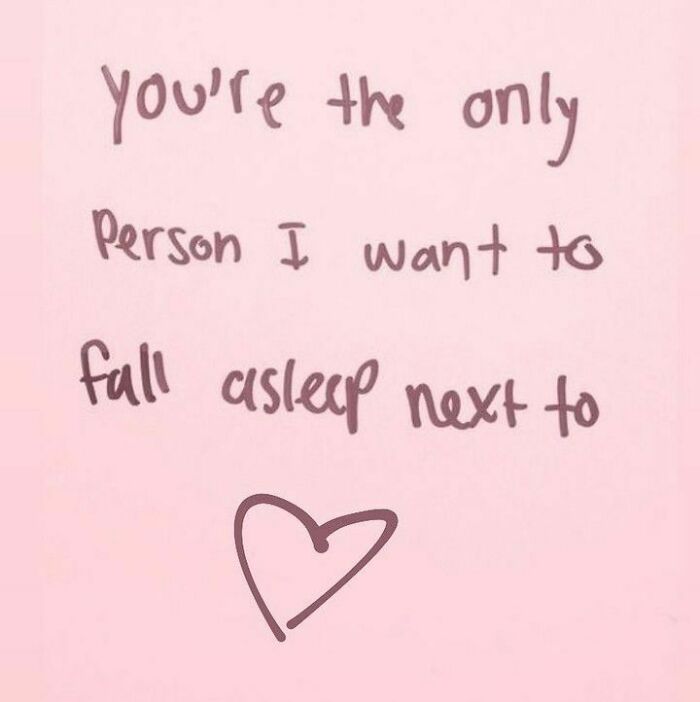 you're the only
Person I want to
fall asleep next to